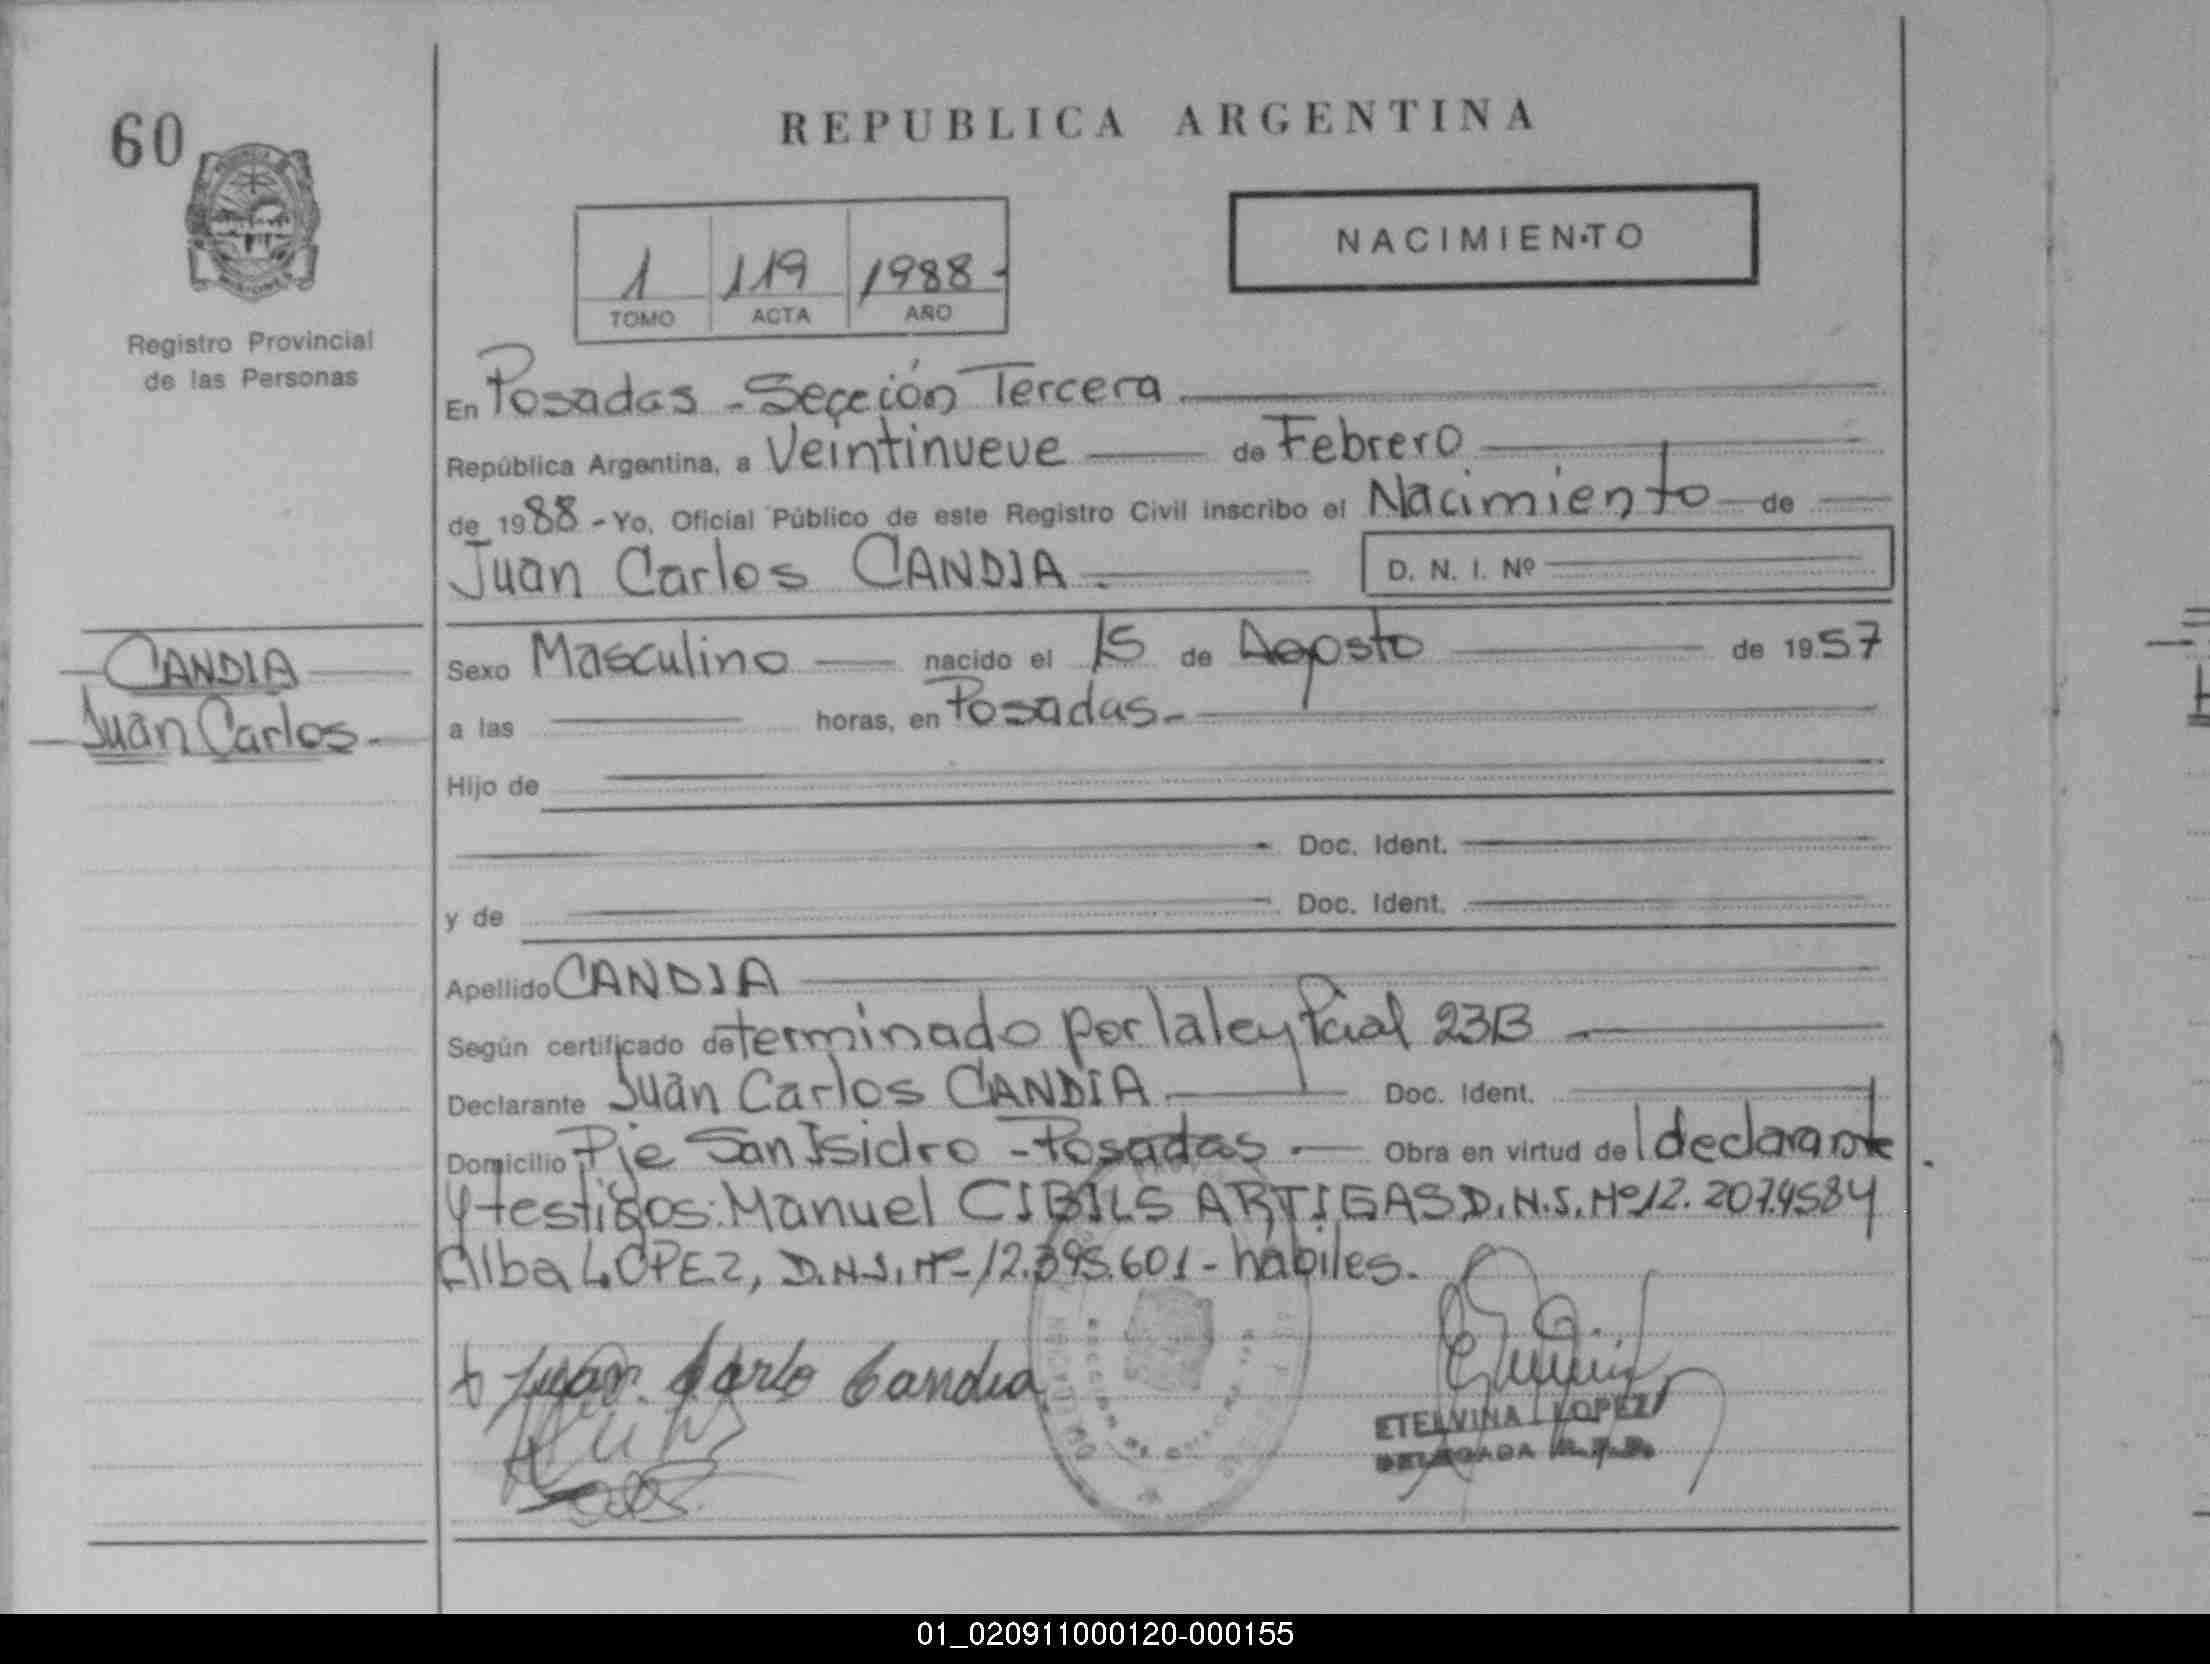 60
REPUBLICA ARGENTINA
NACIMIENTO
1 119 1988
TOMO ACTA AÑO
Registro Provincial
de las Personas
En Posadas - Sección Tercera
República Argentina, a Veintinueve de Febrero
de 1988 - Yo, Oficial Público de este Registro Civil inscribo el Nacimiento de
Juan Carlos CANDIA D. N. I. Nº
CANDIA
Juan Carlos.
Sexo Masculino nacido el 15 de Agosto de 1957
a las horas, en Posadas.
Hijo de
Doc. Ident.
y de Doc. Ident.
Apellido CANDIA
Según certificado determinado por la ley Pcial 23B
Declarante Juan Carlos CANDIA Doc. Ident.
Domicilio Pje San Isidro - Posadas. Obra en virtud del declarante
y testigos: Manuel CIBILS ARTIGAS D.N.I. Nº 12.207.4584
Alba LOPEZ, D.N.I. Nº 12.395.601 - hábiles.
Juan Carlo Candia
ETELVINA LOPEZ
DELEGADA R.P.P.
01_020911000120-000155